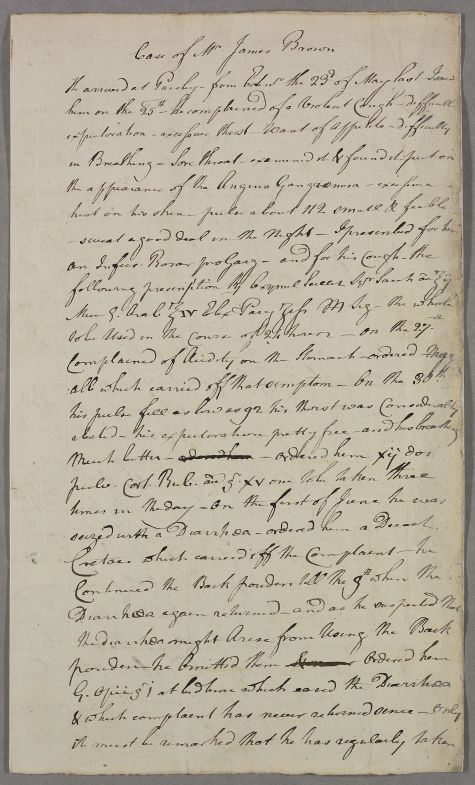 Case of Mr James Brown
He arrived at Paisley - from Edinr the 23d of May last I saw
him on the 25th - he complained of a Violent Cough - difficult
expectoration - excessive thirst - Want of appetite - difficulty
in Breathing - Sore throat - examined it & found it put on
the appearance of the Angina Gangrenosa - excessive
heat on his skin - pulse about 112 small & feeble
- sweat a good deal in the Night - I prescribed for him
an Infus: Rosar pro Garg - and for his Cough - the
following prescription
Muc G. Arab Elix Parg Sig - the whole
to be Used in the Course of 24 hours - On the 27th
Complained of Acidity on the Stomach - ordered Mag
alb which carried off that symptom - On the 30th
his pulse fell as low as 92 his thirst was Considerably
abated - his expectoration pretty free - and his breathing
Much better - ordered him xij dos
pulv. Cort. Rub. xv one to be taken three
times in the day - On the first of June he was
seized with a Diarrhœa - ordered him a Decoct.
Cretac which carried off the Complaint - he
Continued the Bark powders till the 9th when the
Diarrhœa again returned - and as he suspected that
the diarrhœa might Arise from Using the Bark
powders - he Omitted them Ordered him
G. Opii i at bed time which eased the Diarrhœa
& which complaint has never returned since - Only
it must be remarked that he has regularly taken